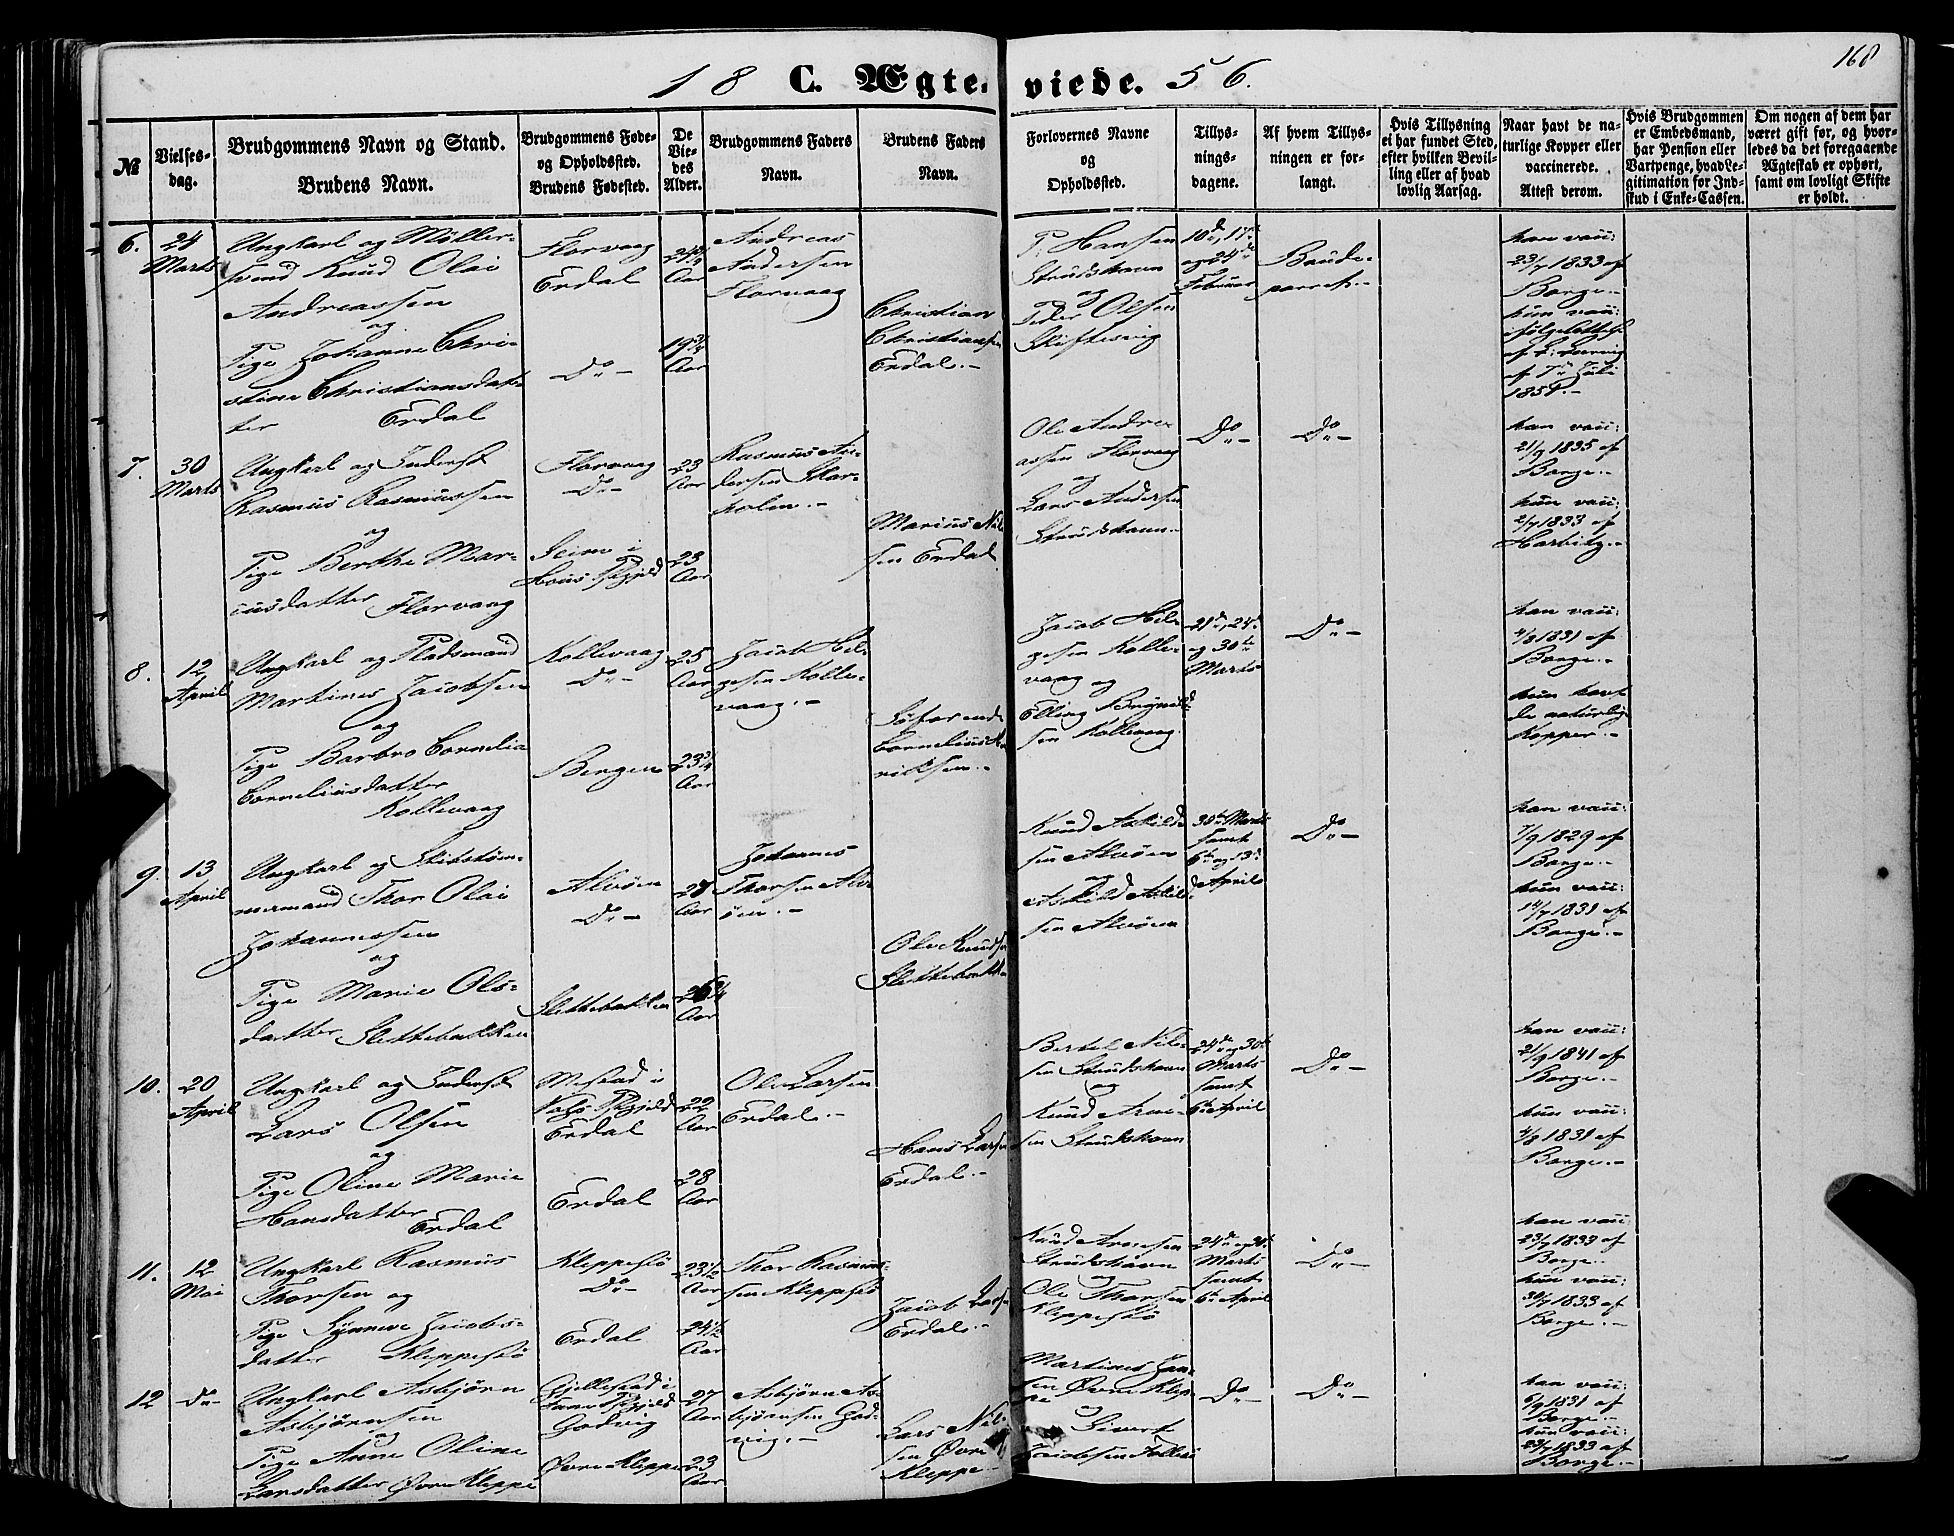 168
18 C. Ægte- viede. 56.
№
Vielses-
dag.
Brudgommens Navn og Stand.
Brudens Navn.
Brudgommens Føde-
og Opholdssted.
Brudens Fødested.
De
Vie-
des
Alder.
Brudgommens Faders
Navn.
Brudens Faders
Navn.
Forlovernes Navne
og
Opholdssted.
Tillys-
nings-
dagene.
Af hvem Tillys-
ningen er for-
langt.
Hvis Tillysning
ei har fundet Sted,
efter hvilken Bevil-
ling eller af hvad
lovlig Aarsag.
Naar havt de na-
turlige Kopper eller
vaccinerede.
Attest derom.
Hvis Brudgommen
er Embedsmand,
har Pension eller
Vartpenge, hvad Le-
gitimation for Ind-
skud i Enke-Cassen.
Om nogen af dem har
været gift før, og hvor-
ledes da det foregaaende
Ægteskab er ophørt,
samt om lovligt Skifte
er holdt.
6.
24
Marts
Ungkarl og Møller-
svend Knud Olai
Andreassen
og
Pige Johanne Chri-
stine Christiansdat-
ter Erdal
Florvaag
Erdal
Do -
24 3/4
Aar
19 3/4
Aar
Andreas
Andersen
Florvaag
Christian
Christiansen
Erdal.-
P. Hansen
Strudshavn
og
Peder Olsen
Skiftesvig
10de, 17de
og 24de
Februar
Brude-
parret.-
han vacc:
23/7 1833 af
Borge.-
hun vacc:
ifølge Attest
af
af 7de Juli
185
7.
30
Marts
Ungkarl og Inderst
Rasmus Rasmussen
og
Pige Berthe Mar-
iusdatter Florvaag
Florvaag
Do -
Seim i
Hous Pgjeld
23
Aar
23
Aar
Rasmus An-
dersen Skar-
holm.-
Marius Nil-
sen Erdal
Ole Andre-
assen Florvaag
og
Lars Andersen
Strudshavn.-
Do -
Do -
han vacc:
21/9 1835 af
Borge.-
hun vacc:
2/7 1833 af
Harbitz.-
8.
12
April
Ungkarl og Pladsmand
Martines Jacobsen
og
Pige Barbro Cornelia
Corneliusdatter
Kollevaag
Kollevaag
Do -
Bergen
25
Aar
23 3/4
Aar
Jacob Hel-
gesen Kolle-
vaag.-
Søfarende
Cornelius
riksen.-
Jacob Hel-
gesen Kolle-
vaag og
Elling Brynild-
sen Kollevaag.
21de, 24de
og 30te
Marts
Do -
han vacc:
4/8 1831 af
Borge.-
hun havt
de naturlige
Kopper.-
9.
13
April
Ungkarl og Skibstøm-
mermand Thor Olai
Johannessen
og
Pige Marie Ols-
datter Slettebakken
Alvøen
Do -
Slettebakken
27
Aar
26 3/4
Aar
Johannes
Thorsen Alv-
øen.-
Ole Knudsen
Slettebakken
Knud Askild-
sen Alvøen
og
Askild Askild-
sen Alvøen
30te Marts
samt
6te og 13de
April
Do -
han vacc:
7/9 1829 af
Borge.-
hun vacc:
14/7 1831 af
Borge.-
10.
20
April
Ungkarl og Inderst
Lars Olsen
og
Pige Oline Marie
Hansdatter Erdal
Mestad i
Vos's Pgjeld
Erdal
Erdal
22
Aar
28
Aar
Ole Larsen
Erdal.-
Hans Larsen
Erdal.-
Bertel Nils-
sen Strudshavn
og
Knud Arne-
sen Strudshavn
24de og 30te
Marts
samt
6te April
Do -
han vacc:
21/9 1841 af
Borge.-
hun vacc:
4/8 1831 af
Borge.-
11.
12
Mai
Ungkarl Rasmus
Thorsen og
Pige Synneve Jacobs-
datter Kleppestø
Kleppestø
Do -
Erdal
23 1/2
Aar
24 1/2
Aar
Thor Rasmus-
sen Kleppestø
Jacob Larsen
Erdal.-
Knud Arnesen
Strudshavn
og
Ole Thorsen
Kleppestø
24de og 30te
Marts
samt
6te April
Do -
han vacc:
23/7 1833 af
Borge.-
hun vacc:
30/7 1833 af
Borge.-
12
Do -
Ungkarl Asbjørn
Asbjørnsen
og
Pige Anne Oline
Larsdatter Øvre Kleppe
Gjellestad i
Fane Pgjeld
Godvig
Øvre Kleppe
27
Aar
23
Aar
Asbjørn As-
bjørnsen God-
vig.-
Lars Nil-
sen Øvre
Kleppe.-
Martines Jan-
sen Øvre Klep-
pe
og Sivert
Jacobsen Follesø
Do -
Do -
han vacc:
6/9 1831 af
Borge.-
hun vacc:
23/7 1833 af
Borge.-